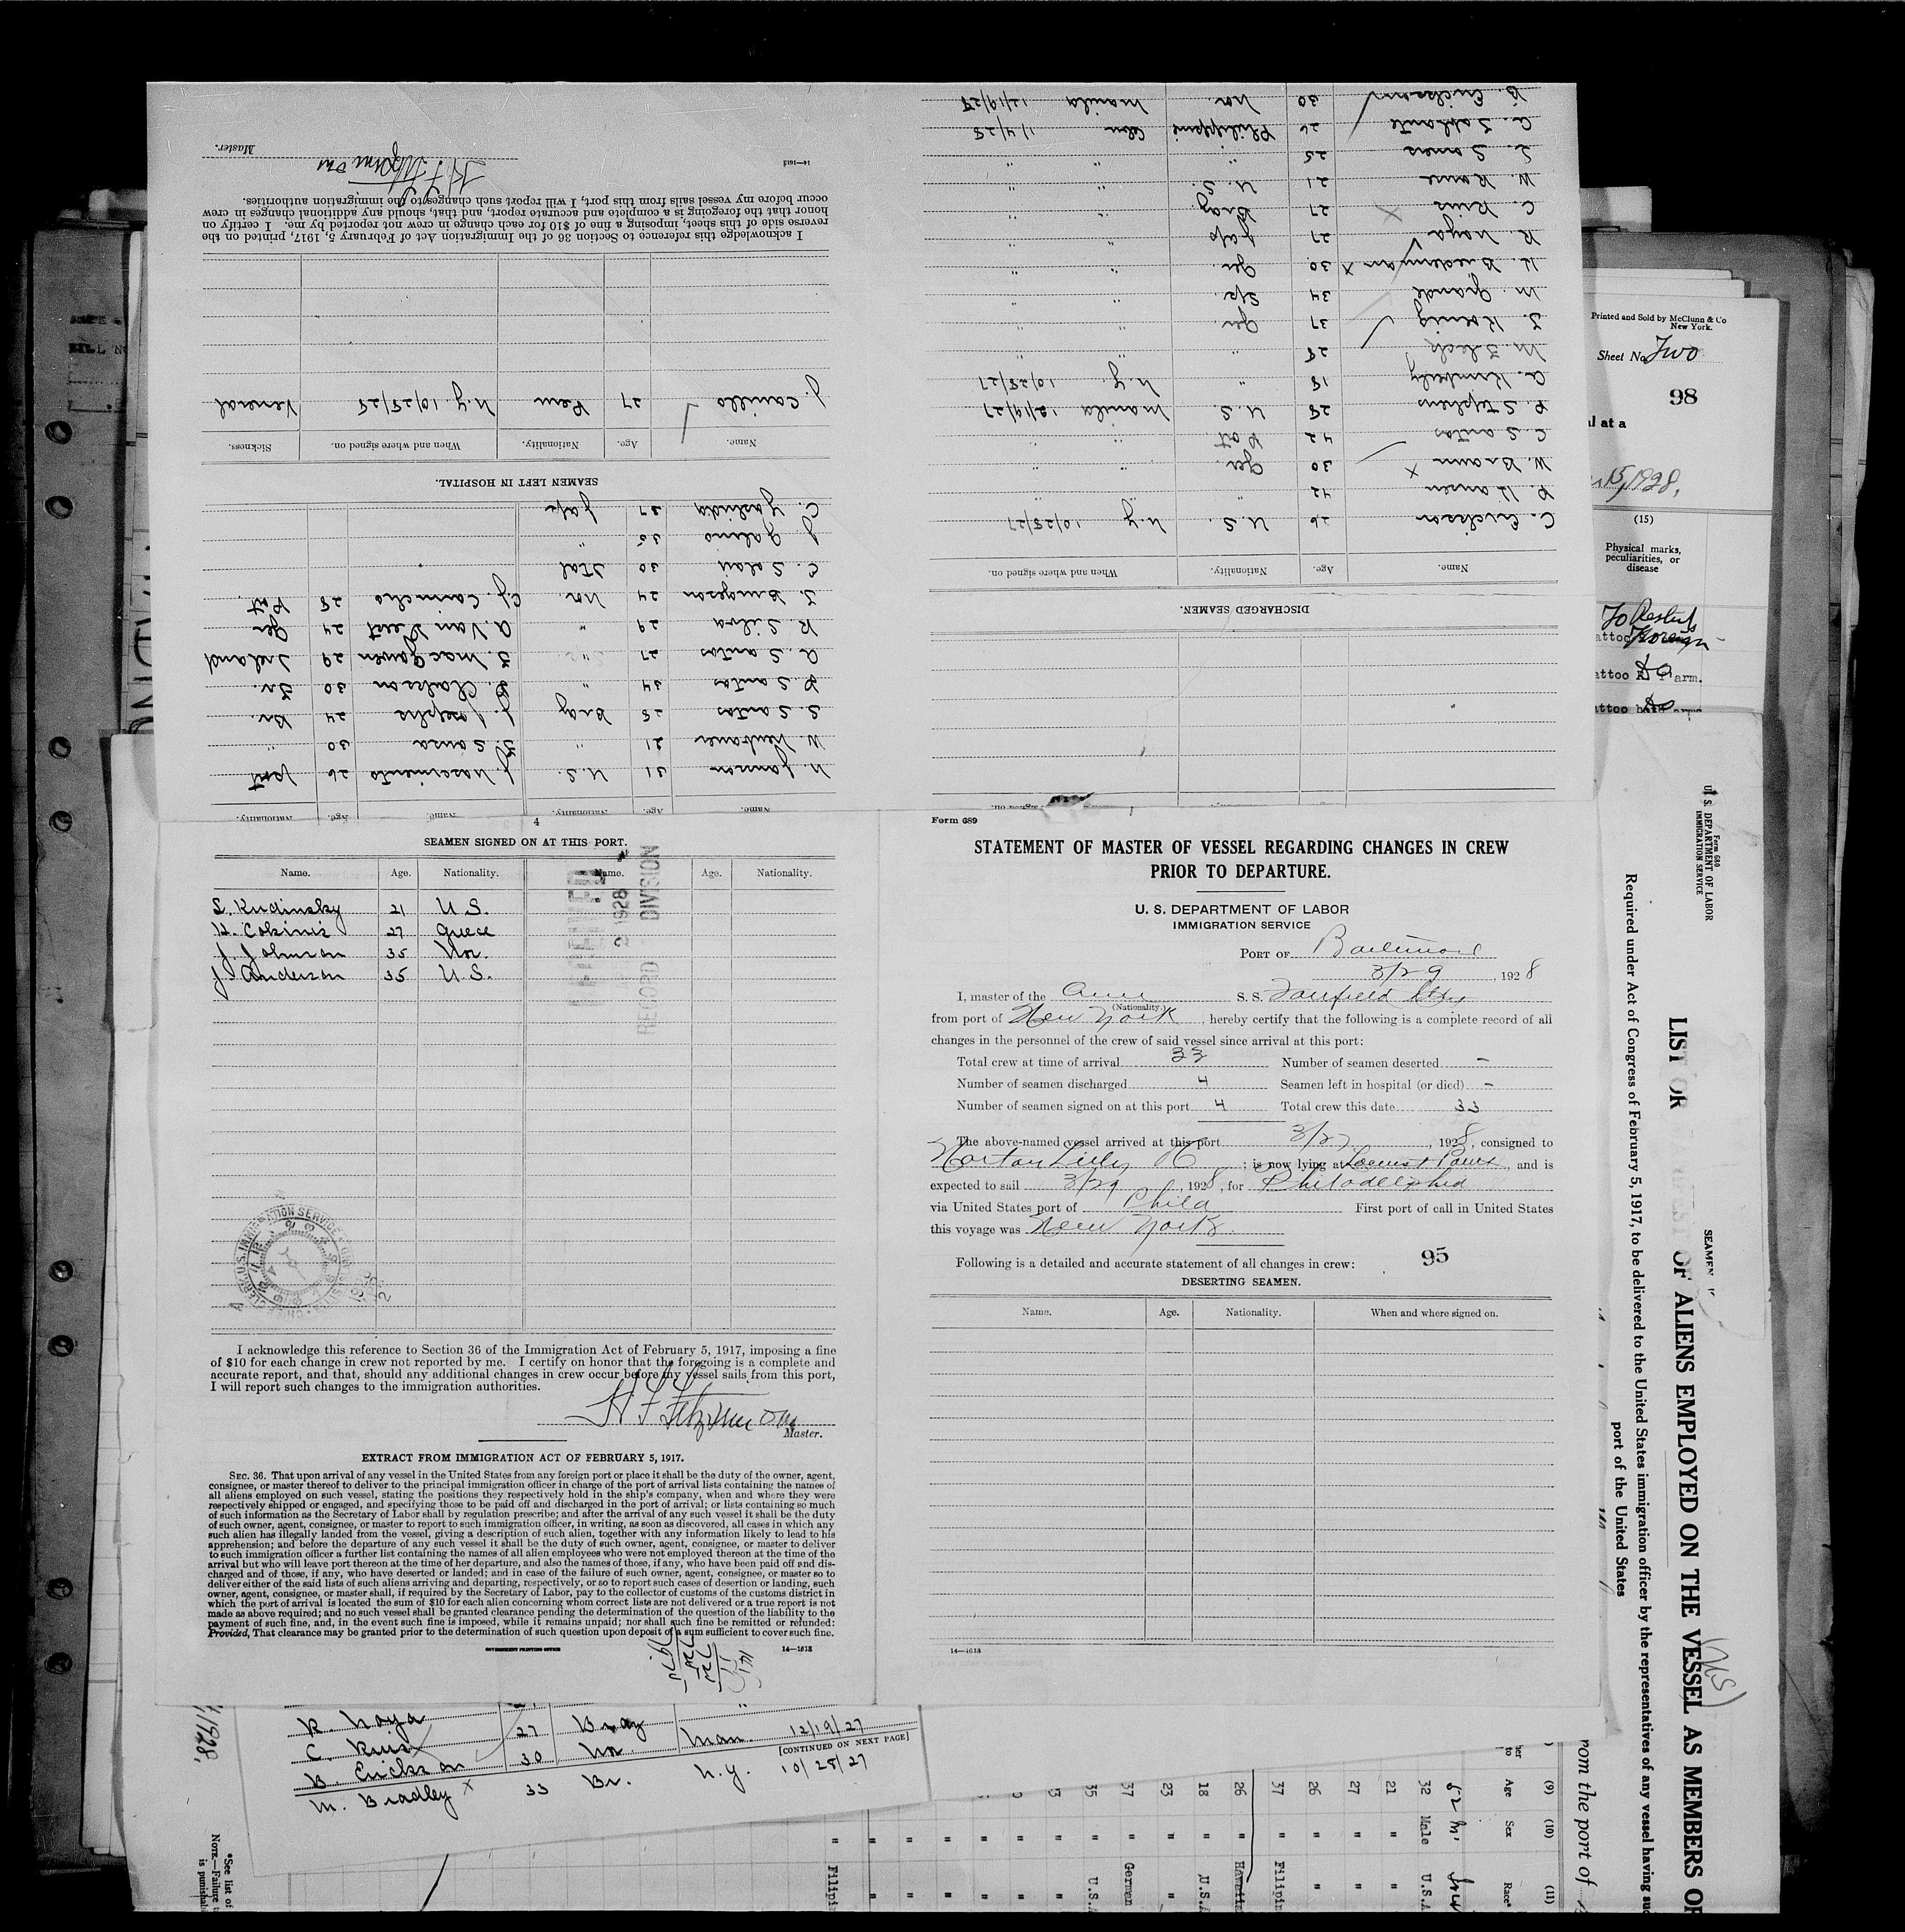 Form 689
STATEMENT OF MASTER OF VESSEL REGARDING CHANGES IN CREW
PRIOR TO DEPARTURE.
U. S. DEPARTMENT OF LABOR
IMMIGRATION SERVICE
PORT OF Baltimore
3/29, 1928
I, master of the Amer S. S. Fairfield City
(Nationality.)
from port of New York, hereby certify that the following is a complete record of all
changes in the personnel of the crew of said vessel since arrival at this port:
Total crew at time of arrival 33 Number of seamen deserted -
Number of seamen discharged 4 Seamen left in hospital (or died) -
Number of seamen signed on at this port 4 Total crew this date 33
The above-named vessel arrived at this port 3/27, 1928, consigned to
Norton Lilly; is now lying at Locust Point, and is
expected to sail 3/29, 1928, for Philadelphia
via United States port of Phila First port of call in United States
this voyage was New York.
Following is a detailed and accurate statement of all changes in crew: 95
DESERTING SEAMEN.
Name. Age. Nationality. When and where signed on.
14—1613
4
SEAMEN SIGNED ON AT THIS PORT.
Name. Age. Nationality. Name. Age. Nationality.
S. Kudinsky 21 U.S.
27 Greece
J. Johnson 35 Nor.
J. Anderson 35 U.S.
RECORD DIVISION
I acknowledge this reference to Section 36 of the Immigration Act of February 5, 1917, imposing a fine
of $10 for each change in crew not reported by me. I certify on honor that the foregoing is a complete and
accurate report, and that, should any additional changes in crew occur before my vessel sails from this port,
I will report such changes to the immigration authorities.
Master.
EXTRACT FROM IMMIGRATION ACT OF FEBRUARY 5, 1917.
SEC. 36. That upon arrival of any vessel in the United States from any foreign port or place it shall be the duty of the owner, agent,
consignee, or master thereof to deliver to the principal immigration officer in charge of the port of arrival lists containing the names of
all aliens employed on such vessel, stating the positions they respectively hold in the ship's company, when and where they were
respectively shipped or engaged, and specifying those to be paid off and discharged in the port of arrival; or lists containing so much
of such information as the Secretary of Labor shall by regulation prescribe; and after the arrival of any such vessel it shall be the duty
of such owner, agent, consignee, or master to report to such immigration officer, in writing, as soon as discovered, all cases in which any
such alien has illegally landed from the vessel, giving a description of such alien, together with any information likely to lead to his
apprehension; and before the departure of any such vessel it shall be the duty of such owner, agent, consignee, or master to deliver
to such immigration officer a further list containing the names of all alien employees who were not employed thereon at the time of the
arrival but who will leave port thereon at the time of her departure, and also the names of those, if any, who have been paid off and dis-
charged and of those, if any, who have deserted or landed; and in case of the failure of such owner, agent, consignee, or master so to
deliver either of the said lists of such aliens arriving and departing, respectively, or so to report such cases of desertion or landing, such
owner, agent, consignee, or master shall, if required by the Secretary of Labor, pay to the collector of customs of the customs district in
which the port of arrival is located the sum of $10 for each alien concerning whom correct lists are not delivered or a true report is not
made as above required; and no such vessel shall be granted clearance pending the determination of the question of the liability to the
payment of such fine, and, in the event such fine is imposed, while it remains unpaid; nor shall such fine be remitted or refunded:
Provided, That clearance may be granted prior to the determination of such question upon deposit of a sum sufficient to cover such fine.
GOVERNMENT PRINTING OFFICE
14—1613
DISCHARGED SEAMEN.
Name. Age. Nationality. When and where signed on.
C. Erickson 26 U.S. N.Y. 10/28/27
P. Hansen 42 " "
W. Braun 30 Ger. " "
C. Santos 42 Port. " "
P. Stephens 28 U.S. Manila 12/19/27
A. Kimberly 18 " N.Y. 10/28/27
M. Fleck 28 " "
F. Koenig 37 Ger. " "
M. Grande 34 Sp. " "
H. Buedemyan 30 Ger. " "
R. Naya 27 Jap " "
C. Ruis 27 Braz " "
W. Rause 21 U.S. " "
L. Somers 25 " " "
A. Sablante 26 Philippine 1/4/28
B. Erickson 30 Nor. Manila 12/19/27
Name. Age. Nationality. Name. Age. Nationality.
N. Jannon 31 U.S. J. Nascimento 26 Port
W. Neubauer 21 " F. Sousa 30 "
S. Santos 28 Braz J. Josephs 24 Br.
P. Santos 34 " P. Clarkson 30 Fr.
A. Santos 27 " F. MacGowen 29 Ireland
R. Silva 29 " A. Van Deest 24 Ger
F. Burgeson 24 Nor. J. Carincho 28 Port.
C. Salas 30 Ital
J. Galino 35 "
C. Yashida 37 Jap
SEAMEN LEFT IN HOSPITAL.
Name. Age. Nationality. When and where signed on. Sickness.
J. Carillo 27 Peru N.Y. 10/28/28 Veneral
I acknowledge this reference to Section 36 of the Immigration Act of February 5, 1917, printed on the
reverse side of this sheet, imposing a fine of $10 for each change in crew not reported by me. I certify on
honor that the foregoing is a complete and accurate report, and that, should any additional changes in crew
occur before my vessel sails from this port, I will report such changes to the immigration authorities.
Master.
14—1613
R. Naya
C. Ruis 27 Braz
B. Erickson 30 Nor. Man. 12/19/27
[CONTINUED ON NEXT PAGE]
M. Bradley 33 Br. N.Y. 10/28/27
Printed and Sold by McClunn & Co
New York.
Sheet No. Two
98
15, 1928,
(15)
Physical marks,
peculiarities, or
disease
Form 680
U. S. DEPARTMENT OF LABOR
IMMIGRATION SERVICE
LIST OR
OF ALIENS EMPLOYED ON THE VESSEL AS MEMBERS OF
Required under Act of Congress of February 5, 1917, to be delivered to the United States immigration officer by the representatives of any vessel having
port of the United States
from the port of
(9) (10) (11)
Age Sex Race*
32 Male U.S.A
21
27
26
37 Filipin
26
18 U.S.A
23
37 German
35 U.S.A
Filipi
*See list of
NOTE.—Failure
is punishab